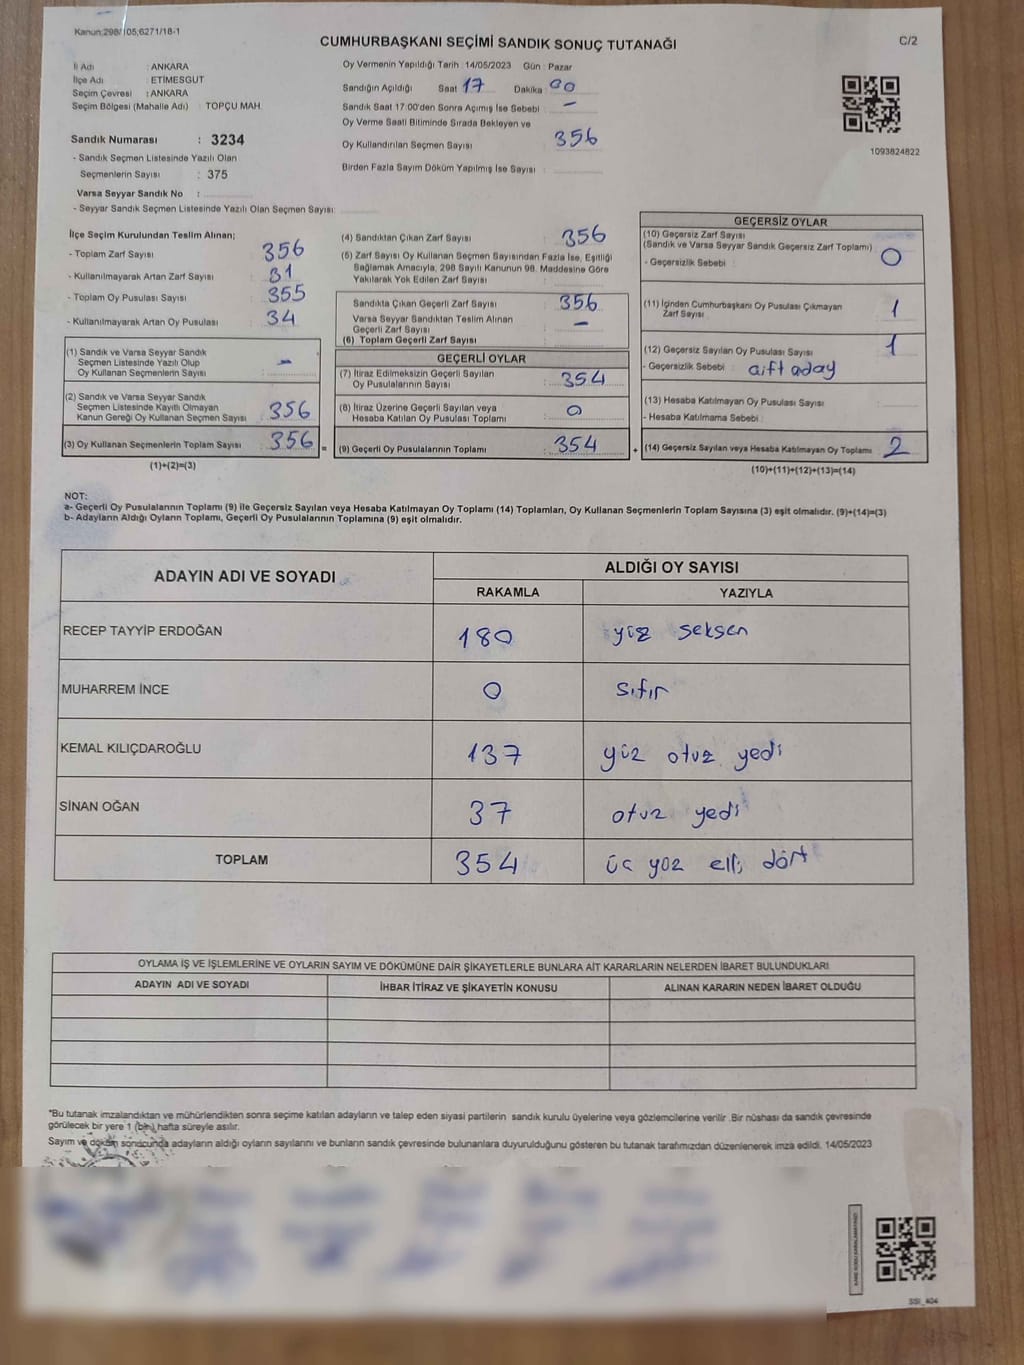 Kanun:298/105;6271/18-1
CUMHURBAŞKANI SEÇİMİ SANDIK SONUÇ TUTANAĞI
C/2
İl Adı : ANKARA
İlçe Adı : ETİMESGUT
Seçim Çevresi : ANKARA
Seçim Bölgesi (Mahalle Adı) : TOPÇU MAH.
Sandık Numarası : 3234
- Sandık Seçmen Listesinde Yazılı Olan
Seçmenlerin Sayısı : 375
Varsa Seyyar Sandık No :
- Seyyar Sandık Seçmen Listesinde Yazılı Olan Seçmen Sayısı:
Oy Vermenin Yapıldığı Tarih : 14/05/2023 Gün : Pazar
Sandığın Açıldığı Saat 17 Dakika 00
Sandık Saat 17:00'den Sonra Açımış İse Sebebi : -
Oy Verme Saati Bitiminde Sırada Bekleyen ve
Oy Kullandırılan Seçmen Sayısı : 356
Birden Fazla Sayım Döküm Yapılmış İse Sayısı :
1093824822
İlçe Seçim Kurulundan Teslim Alınan;
- Toplam Zarf Sayısı : 356
- Kullanılmayarak Artan Zarf Sayısı : 31
- Toplam Oy Pusulası Sayısı : 355
- Kullanılmayarak Artan Oy Pusulası : 34
(1) Sandık ve Varsa Seyyar Sandık
Seçmen Listesinde Yazılı Olup
Oy Kullanan Seçmenlerin Sayısı : -
(2) Sandık ve Varsa Seyyar Sandık
Seçmen Listesinde Kayıtlı Olmayan
Kanun Gereği Oy Kullanan Seçmen Sayısı : 356
(3) Oy Kullanan Seçmenlerin Toplam Sayısı : 356 =
(1)+(2)=(3)
(4) Sandıktan Çıkan Zarf Sayısı : 356
(5) Zarf Sayısı Oy Kullanan Seçmen Sayısından Fazla İse, Eşitliği
Sağlamak Amacıyla, 298 Sayılı Kanunun 98. Maddesine Göre
Yakılarak Yok Edilen Zarf Sayısı :
Sandıkta Çıkan Geçerli Zarf Sayısı : 356
Varsa Seyyar Sandıktan Teslim Alınan
Geçerli Zarf Sayısı : -
(6) Toplam Geçerli Zarf Sayısı :
GEÇERLİ OYLAR
(7) İtiraz Edilmeksizin Geçerli Sayılan
Oy Pusulalarının Sayısı : 354
(8) İtiraz Üzerine Geçerli Sayılan veya
Hesaba Katılan Oy Pusulası Toplamı : 0
(9) Geçerli Oy Pusulalarının Toplamı : 354 +
GEÇERSİZ OYLAR
(10) Geçersiz Zarf Sayısı
(Sandık ve Varsa Seyyar Sandık Geçersiz Zarf Toplamı) 0
- Geçersizlik Sebebi :
(11) İçinden Cumhurbaşkanı Oy Pusulası Çıkmayan
Zarf Sayısı : 1
(12) Geçersiz Sayılan Oy Pusulası Sayısı : 1
- Geçersizlik Sebebi : çift aday
(13) Hesaba Katılmayan Oy Pusulası Sayısı :
- Hesaba Katılmama Sebebi :
(14) Geçersiz Sayılan veya Hesaba Katılmayan Oy Toplamı : 2
(10)+(11)+(12)+(13)=(14)
NOT:
a- Geçerli Oy Pusulalarının Toplamı (9) ile Geçersiz Sayılan veya Hesaba Katılmayan Oy Toplamı (14) Toplamları, Oy Kullanan Seçmenlerin Toplam Sayısına (3) eşit olmalıdır. (9)+(14)=(3)
b- Adayların Aldığı Oyların Toplamı, Geçerli Oy Pusulalarının Toplamına (9) eşit olmalıdır.
ADAYIN ADI VE SOYADI
ALDIĞI OY SAYISI
RAKAMLA YAZIYLA
RECEP TAYYİP ERDOĞAN 180 yüz seksen
MUHARREM İNCE 0 sıfır
KEMAL KILIÇDAROĞLU 137 yüz otuz yedi
SİNAN OĞAN 37 otuz yedi
TOPLAM 354 üç yüz elli dört
OYLAMA İŞ VE İŞLEMLERİNE VE OYLARIN SAYIM VE DÖKÜMÜNE DAİR ŞİKAYETLERLE BUNLARA AİT KARARLARIN NELERDEN İBARET BULUNDUKLARI
ADAYIN ADI VE SOYADI İHBAR İTİRAZ VE ŞİKAYETİN KONUSU ALINAN KARARIN NEDEN İBARET OLDUĞU
*Bu tutanak imzalandıktan ve mühürlendikten sonra seçime katılan adayların ve talep eden siyasi partilerin sandık kurulu üyelerine veya gözlemcilerine verilir .Bir nüshası da sandık çevresinde
görülecek bir yere 1 (bir) hafta süreyle asılır.
Sayım ve döküm sonucunda adayların aldığı oyların sayılarını ve bunların sandık çevresinde bulunanlara duyurulduğunu gösteren bu tutanak tarafımızdan düzenlenerek imza edildi. 14/05/2023
SSI_404